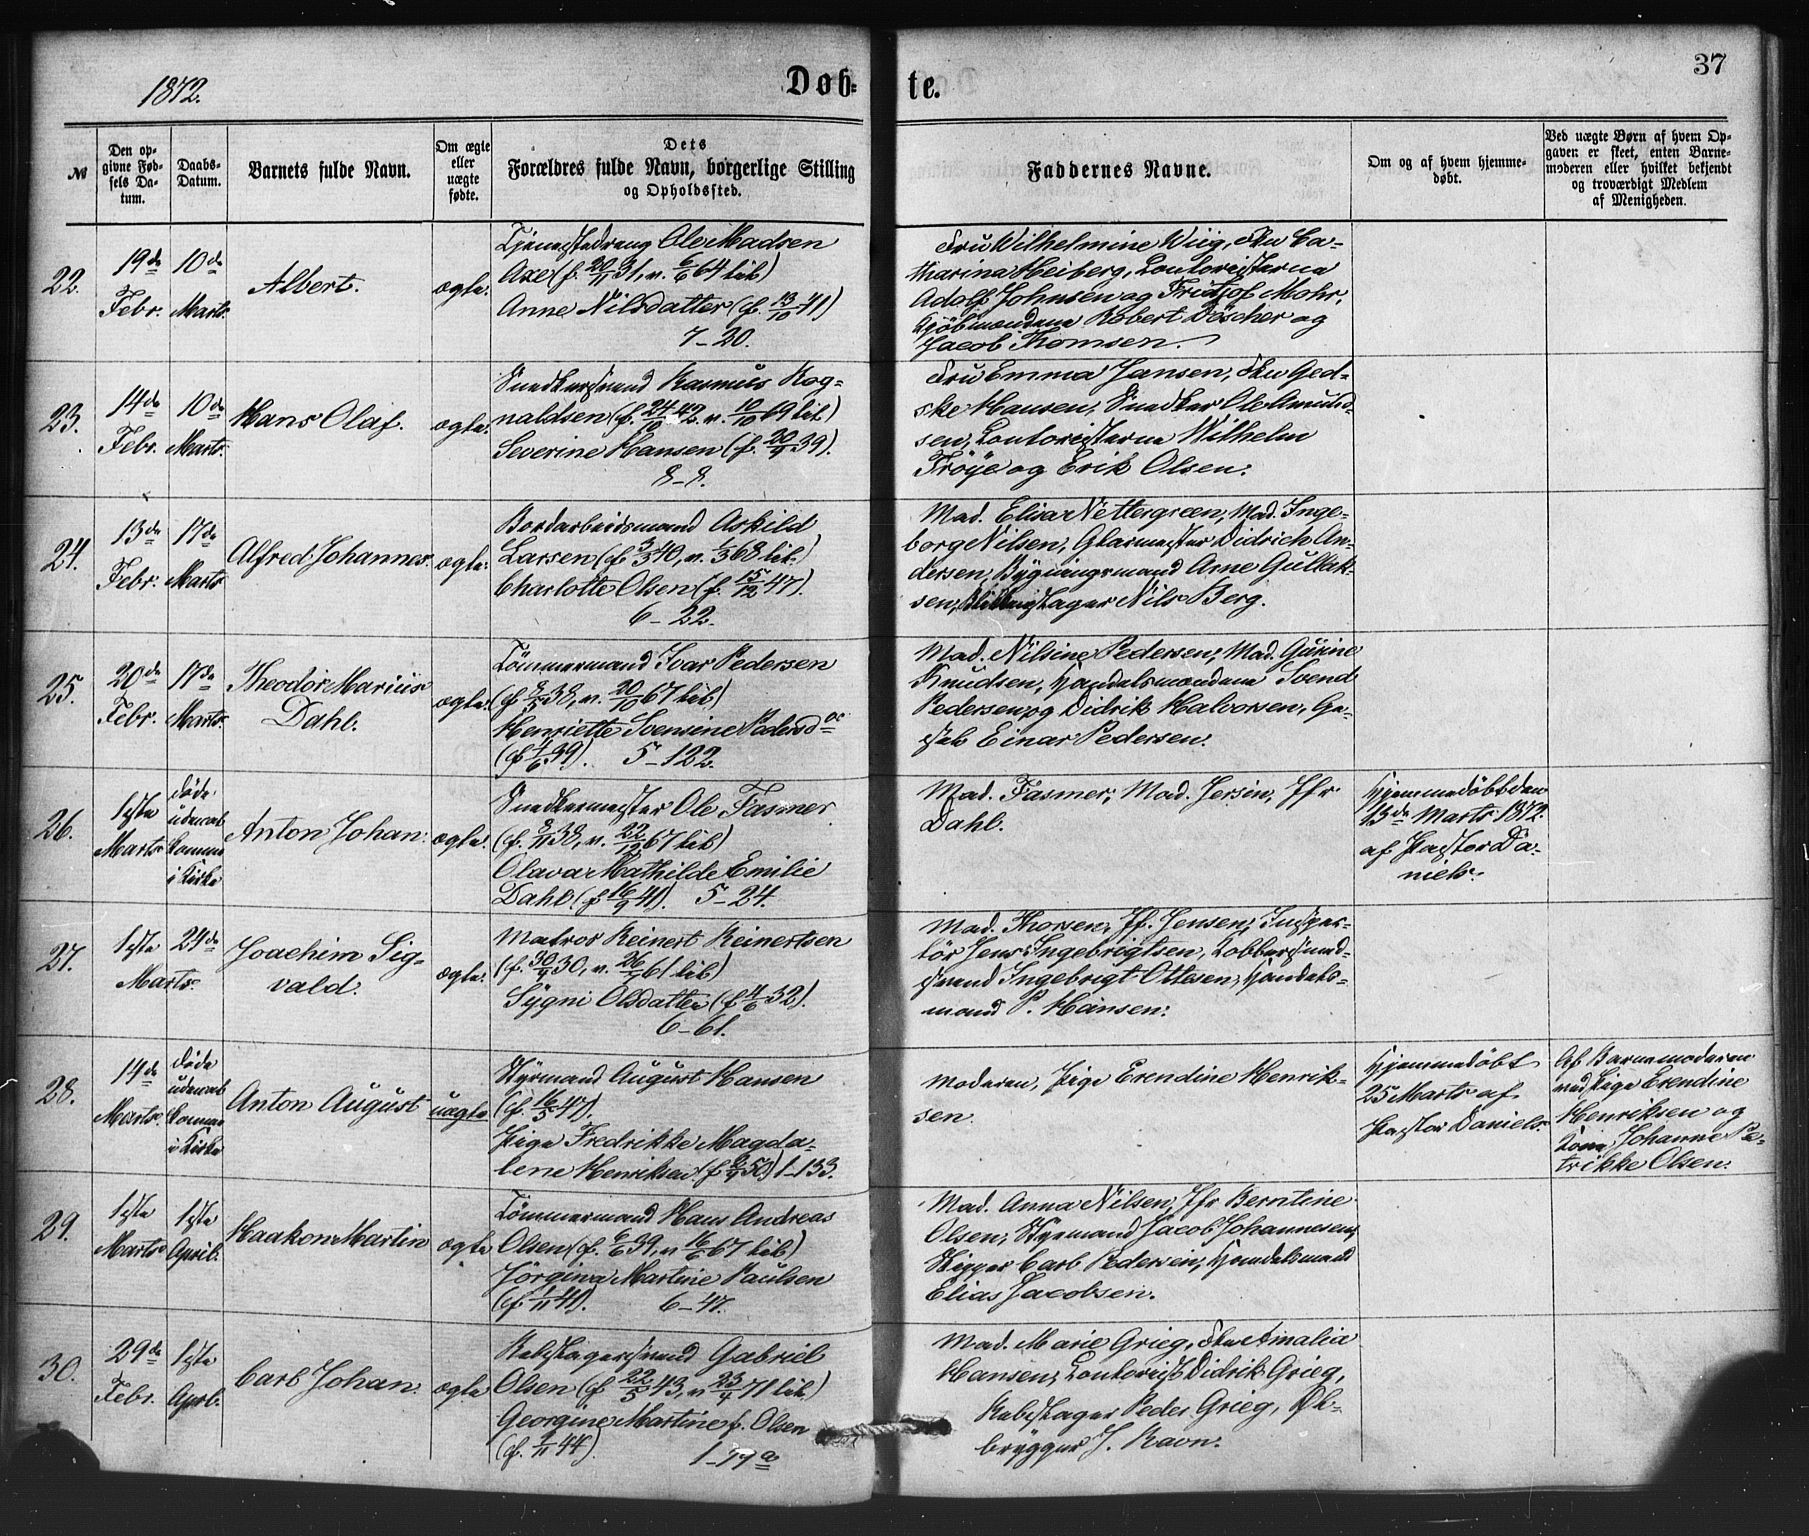 1872.
Døb-
te.
37
№
Den op-
givne Fød-
sels Da-
tum.
Daabs-
Datum.
Barnets fulde Navn.
Om ægte
eller
uægte
fødte.
Dets
Forældres fulde Navn, borgerlige Stilling
og Opholdssted.
Faddernes Navne.
Om og af hvem hjemme-
døbt.
Ved uægte Børn af hvem Op-
gaven er skeet, enten Barne-
moderen eller hvilket bekjendt
og troværdigt Medlem
af Menigheden.
22.
19de
Febr.
10de
Marts.
Albert.
ægte.
Tjenestedreng Ole Madsen
Axe (f. 20/11 31, v. 6/6 64 lib)
Anne Nilsdatter (f. 13/10 41)
7–20.
Fru Wilhelmine Wiig, Fru Ca-
tharina Heiberg, Contoristerne
Adolf Johnsen og Fridtjof Mohr,
Kjøbmændene Robert Döscher og
Jacob Thomsen.
23.
14de
Febr.
10de
Marts.
Hans Olaf.
ægte.
Snedkersvend Rasmus Rog-
naldsen (f. 24/10 42. v. 10/10 69 lib)
Severine Hansen (f. 20/9 39).
8–8.
Fru Emma Jansen, Fru Ged-
ske Hansen, Snedker Ole Amund-
sen, Contoristerne Wilhelm
Trøye og Erik Olsen.
24.
13de
Febr.
17de
Marts
Alfred Johannes.
ægte.
Bordarbeidsmand Askild
Larsen (f. 3/3 40, v. 1/3 68 lib.)
Charlotte Olsen (f. 15/12 47).
6–22.
Mad. Elisa Nettergreen, Mad. Inge-
borg Nilsen, Glarmester Didrich An-
dersen, Bygningsmand Arne Gullik-
sen, Nils Berg.
25.
20de
Febr.
17de
Marts.
Theodor Marius
Dahl.
ægte.
Tømmermand Ivar Pedersen
(f. 7/5 38, v. 20/10 67 lib)
Henriette Svensine Pedersd
(f. 4/6 39). 5–122.
Mad. Nilsine Pedersen, Mad. Gurine
Knudsen, Handelsmændene Svend
Pedersen og Didrik Halvorsen, Ga-
Einar Pedersen.
26.
1ste
Marts.
døde
uden at
komme
i Kirke
Anton Johan.
ægte.
Snedkermester Ole Fasmer
(f. 8/11 38, v. 22/12 67 lib)
Olava Mathilde Emilie
Dahl (f 16/9 41). 5–24.
Mad. Fasmer, Mad. Jersin, Jfr
Dahl.
Hjemmedøbt den
13de Marts 1872.
af Pastor Da-
niels.
27.
1ste
Marts.
24de
Joachim Sig-
vald.
ægte.
Matros Reinert Reinertsen
(f. 30/9 30, v. 26/5 61 lib)
Sygni Olsdatter (f 4/6 32).
6–61.
Mad. Thorsen, Jf. Jensen, Inspec-
tør Jens Ingebrigtsen, Kobbersmed-
svend Ingebrigt Ottesen, Handels-
mand P. Hansen.
28.
14de
Marts.
døde
uden at
komme
i Kirke
Anton August
uægte
Styrmand August Hansen
(f. 16/5 47).
Pige Fredrikke Magda-
lene Henriksen (f 8/9 50) 1–133.
Moderen, Pige Erendine Henrik-
sen.
Hjemmedøbt
25 Marts af
Pastor Daniels.
Af Barnemoderen
med Pige Erendine
Henriksen og
Kone Johanne Pe-
trikke Olsen.
29.
1ste
Marts.
1ste
April.
Haakon Martin
ægte
Tømmermand Hans Andreas
Olsen (f. 6/6 39, v 16/6 67 lib)
Jørgina Martine Paulsen
(f. 1/11 40). 6–47.
Mad. Anna Nilsen, Jfr Berntine
Olsen, Styrmand Jacob Johannesen,
Rigger Carl Pedersen, Handelsmand
Elias Jacobsen.
30.
29de
Febr.
1ste
April.
Carl Johan.
ægte
Rebslagersvend Gabriel
Olsen (f 22/5 43, v 23/4 71 lib.)
Georgine Martine f. Olsen
(f. 2/11 44) 1–19a
Mad. Marie Grieg, Fru Amalia
Hansen, Contorist Didrik Grieg,
Rebslager Peder Grieg, Øl-
brygger J. Ravn.